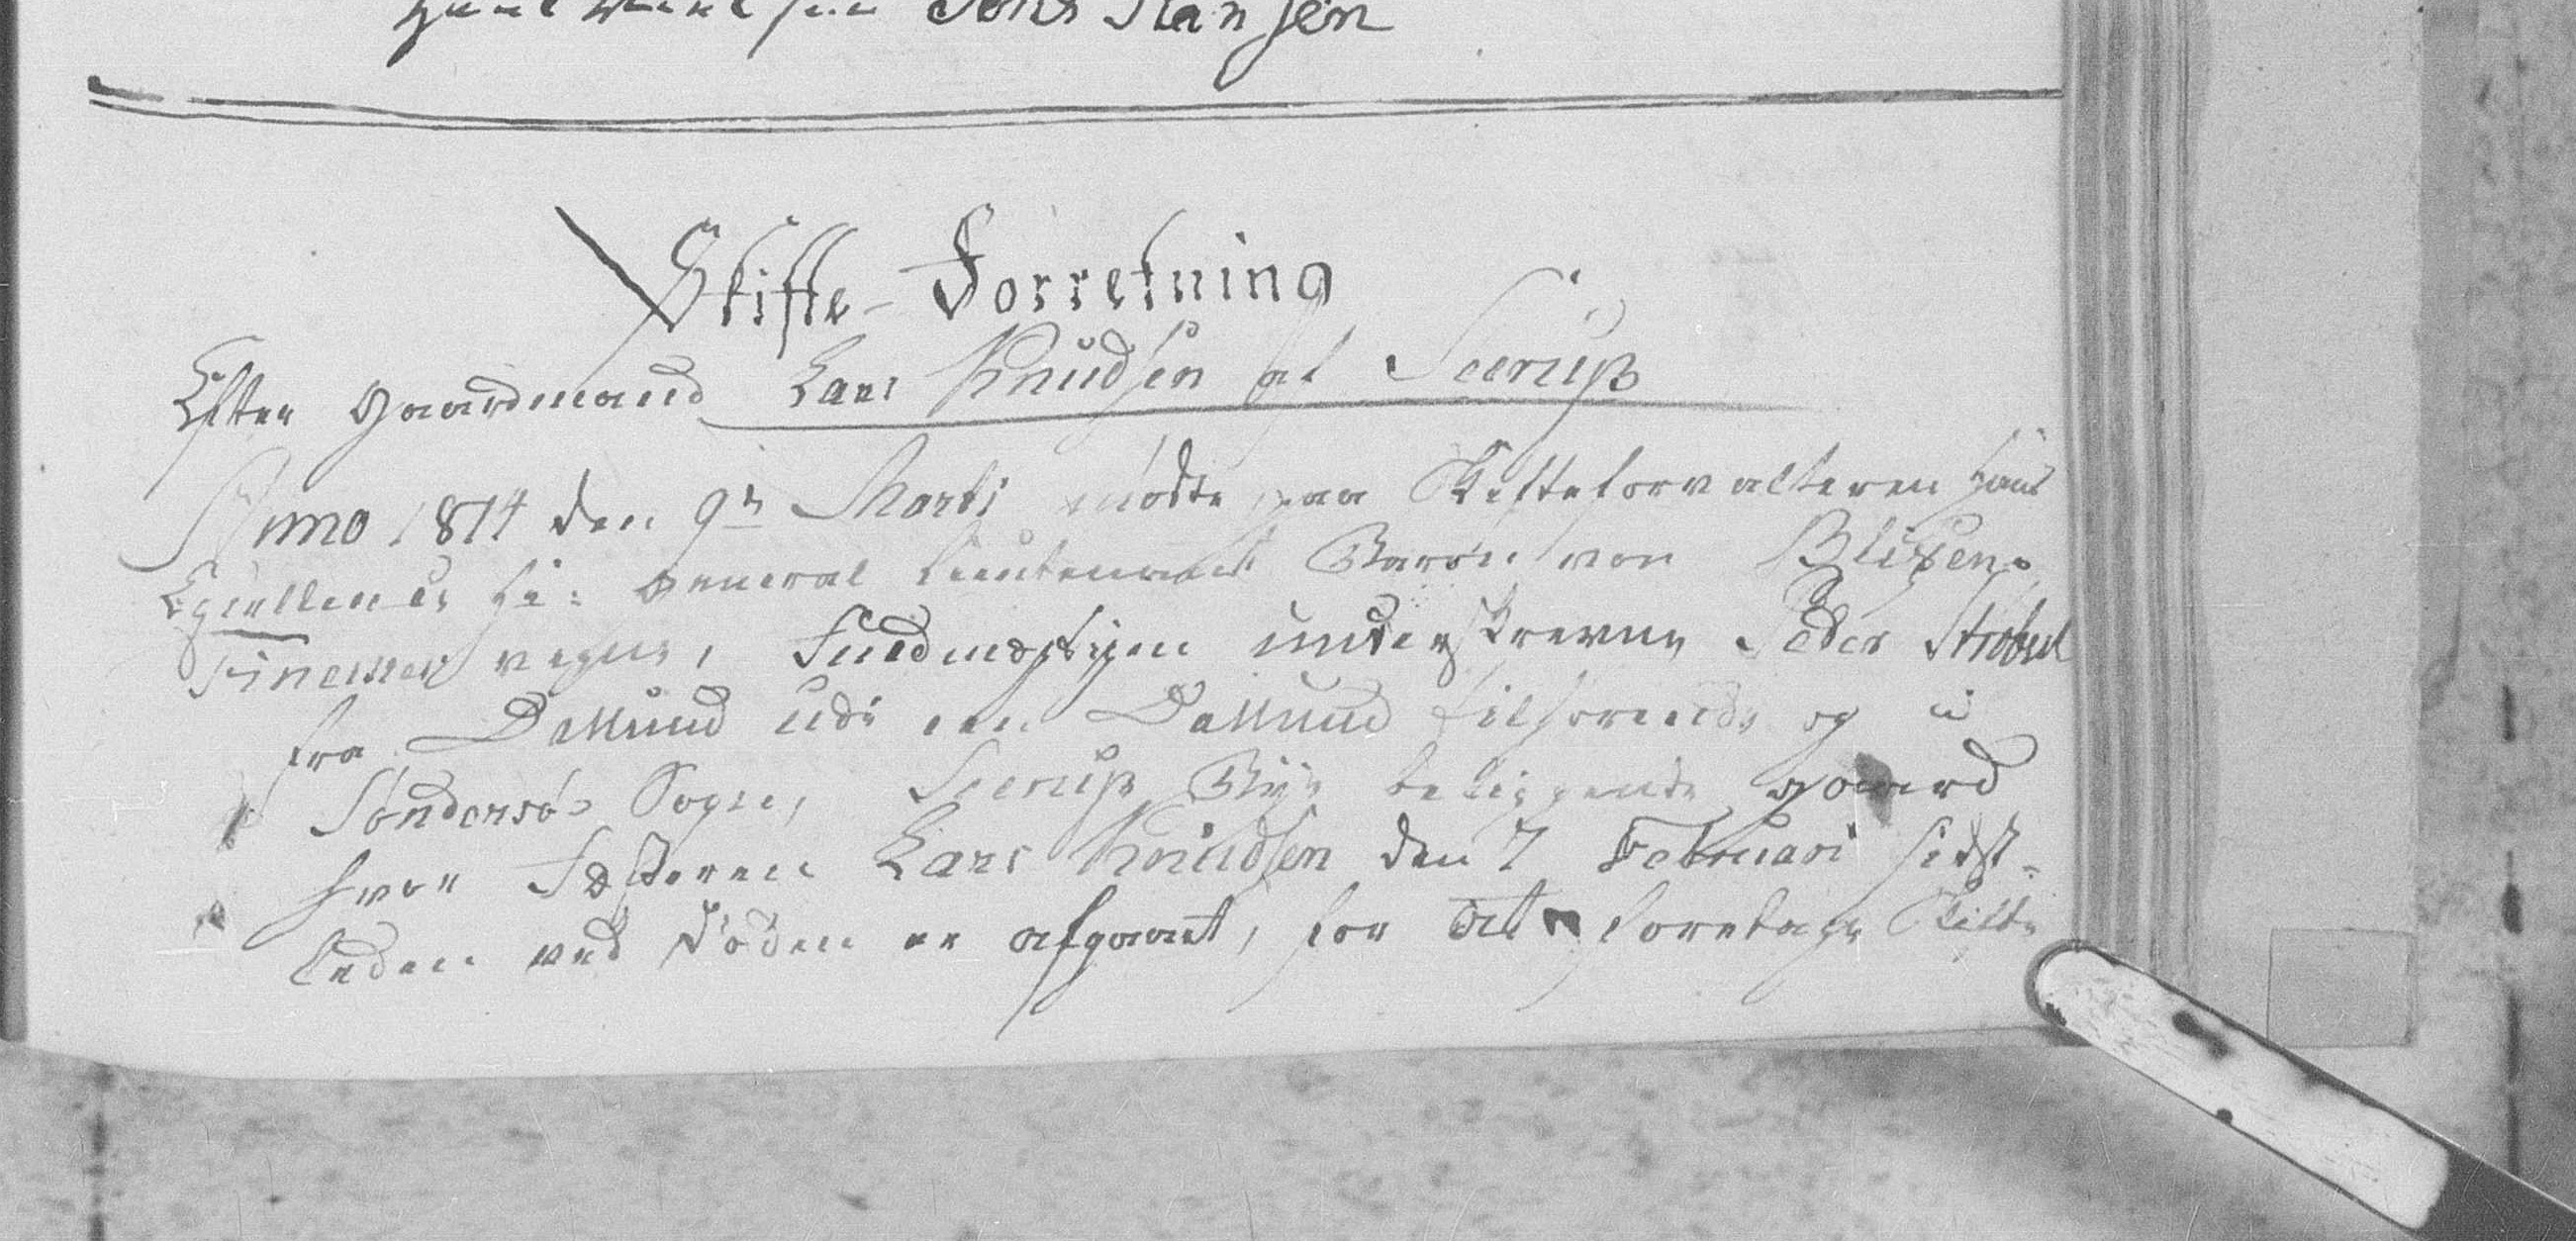 Jens Hansen
Skifte-Forretning
Efter Gaardmand Lars Knudsen af Seerup
Anno 1814 den 9n Marti mødte paa Skifteforvalteren Hans
Excellence Hr: General Lieutenant Baron von Blixen-
Finecker vegne, Fuldmægtigen underskrevne Peder Strøbech
fra Dallund udi een Dallund tilhørende og i
Søndersøe Sogn, Seerup Bye beliggende Gaard
hvor Fæsteren Lars Knudsen den 7 Februari sidst-
leden ved Døden er afgaaet, for at foretage Skifte